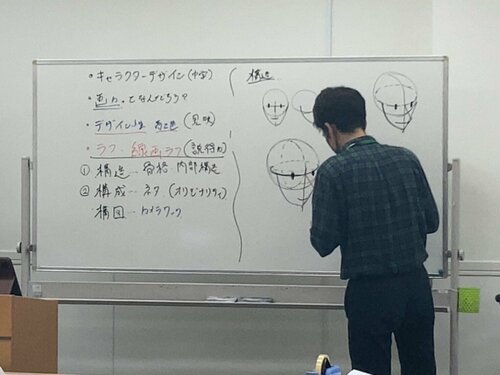 ・キャラクターデザイン
・画力ってなんだろう?
・デザイン
・ラフ・線画ラフ (説得力)
① 構造…骨格・内部構造
② 構成…ネタ (オリジナリティ)
構図…カメラワーク
構造